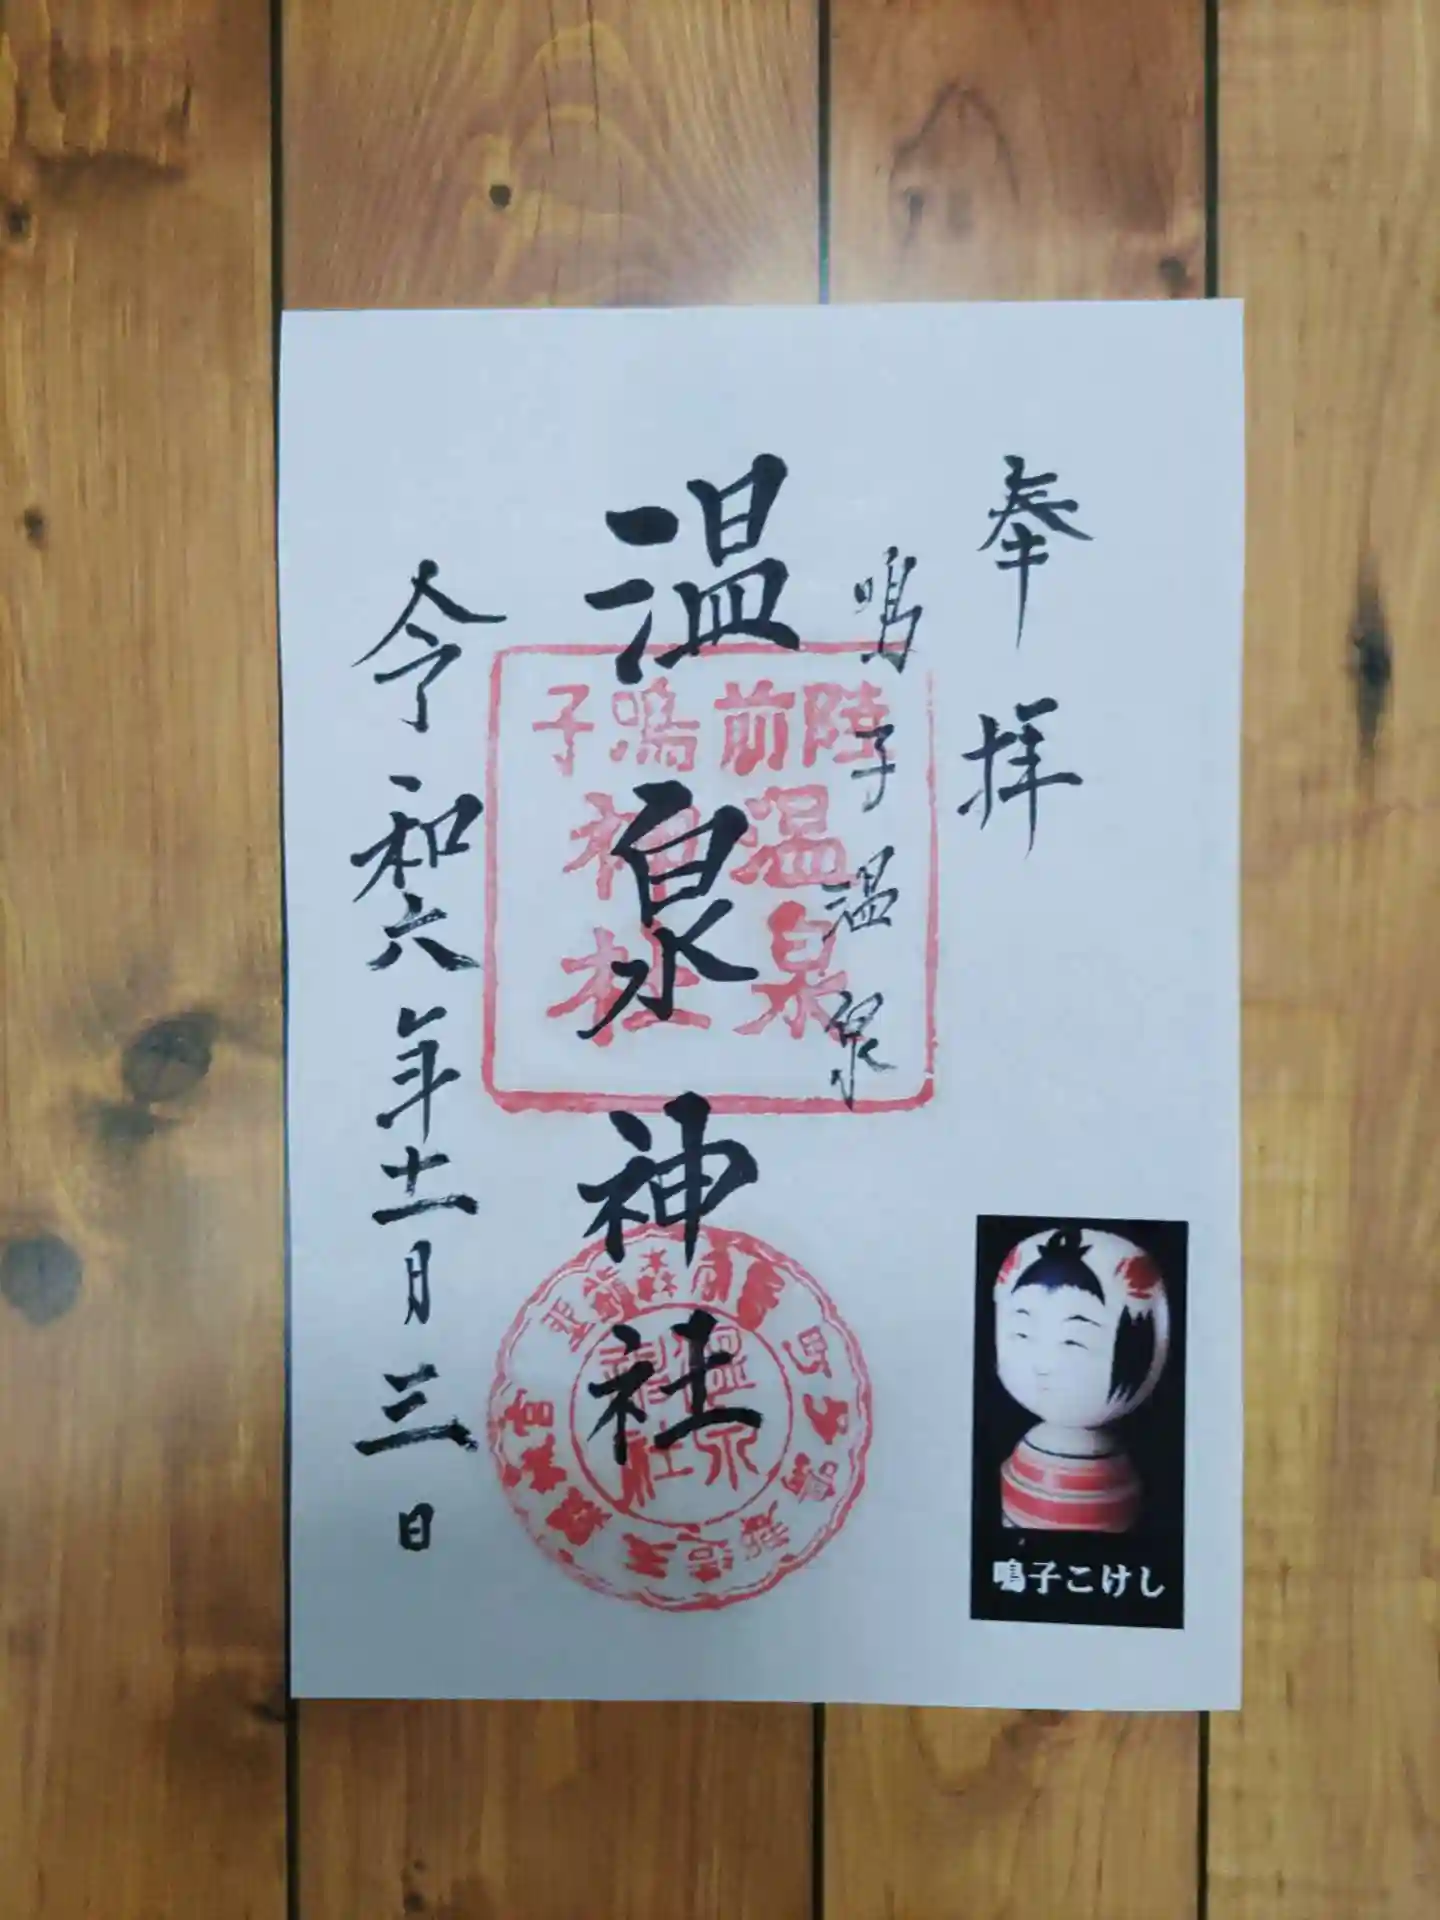 奉拝
鳴子温泉
温泉神社
令和六年十一月三日
陸前鳴子
温泉
神社
温泉
神社
鳴子こけし